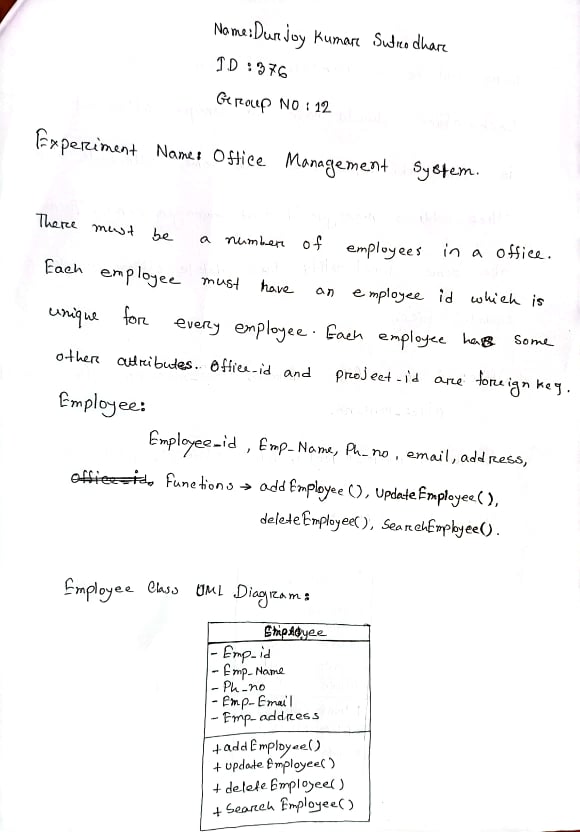 Name: Durjoy Kumar Sutrodhar
ID : 376
Group NO : 12
Experiment Name: Office Management System.
There must be a number of employees in a office.
Each employee must have an employee id which is
unique for every employee. Each employee has some
other attributes. Office-id and project-id are foreign key.
Employee:
Employee-id, Emp-Name, Ph-no, email, address,
office-id. Functions → addEmployee(), UpdateEmployee(),
deleteEmployee(), SearchEmployee().
Employee Class UML Diagram:
Employee
- Emp-id
- Emp-Name
- Ph-no
- Emp-Email
- Emp-address
+ addEmployee()
+ updateEmployee()
+ deleteEmployee()
+ SearchEmployee()